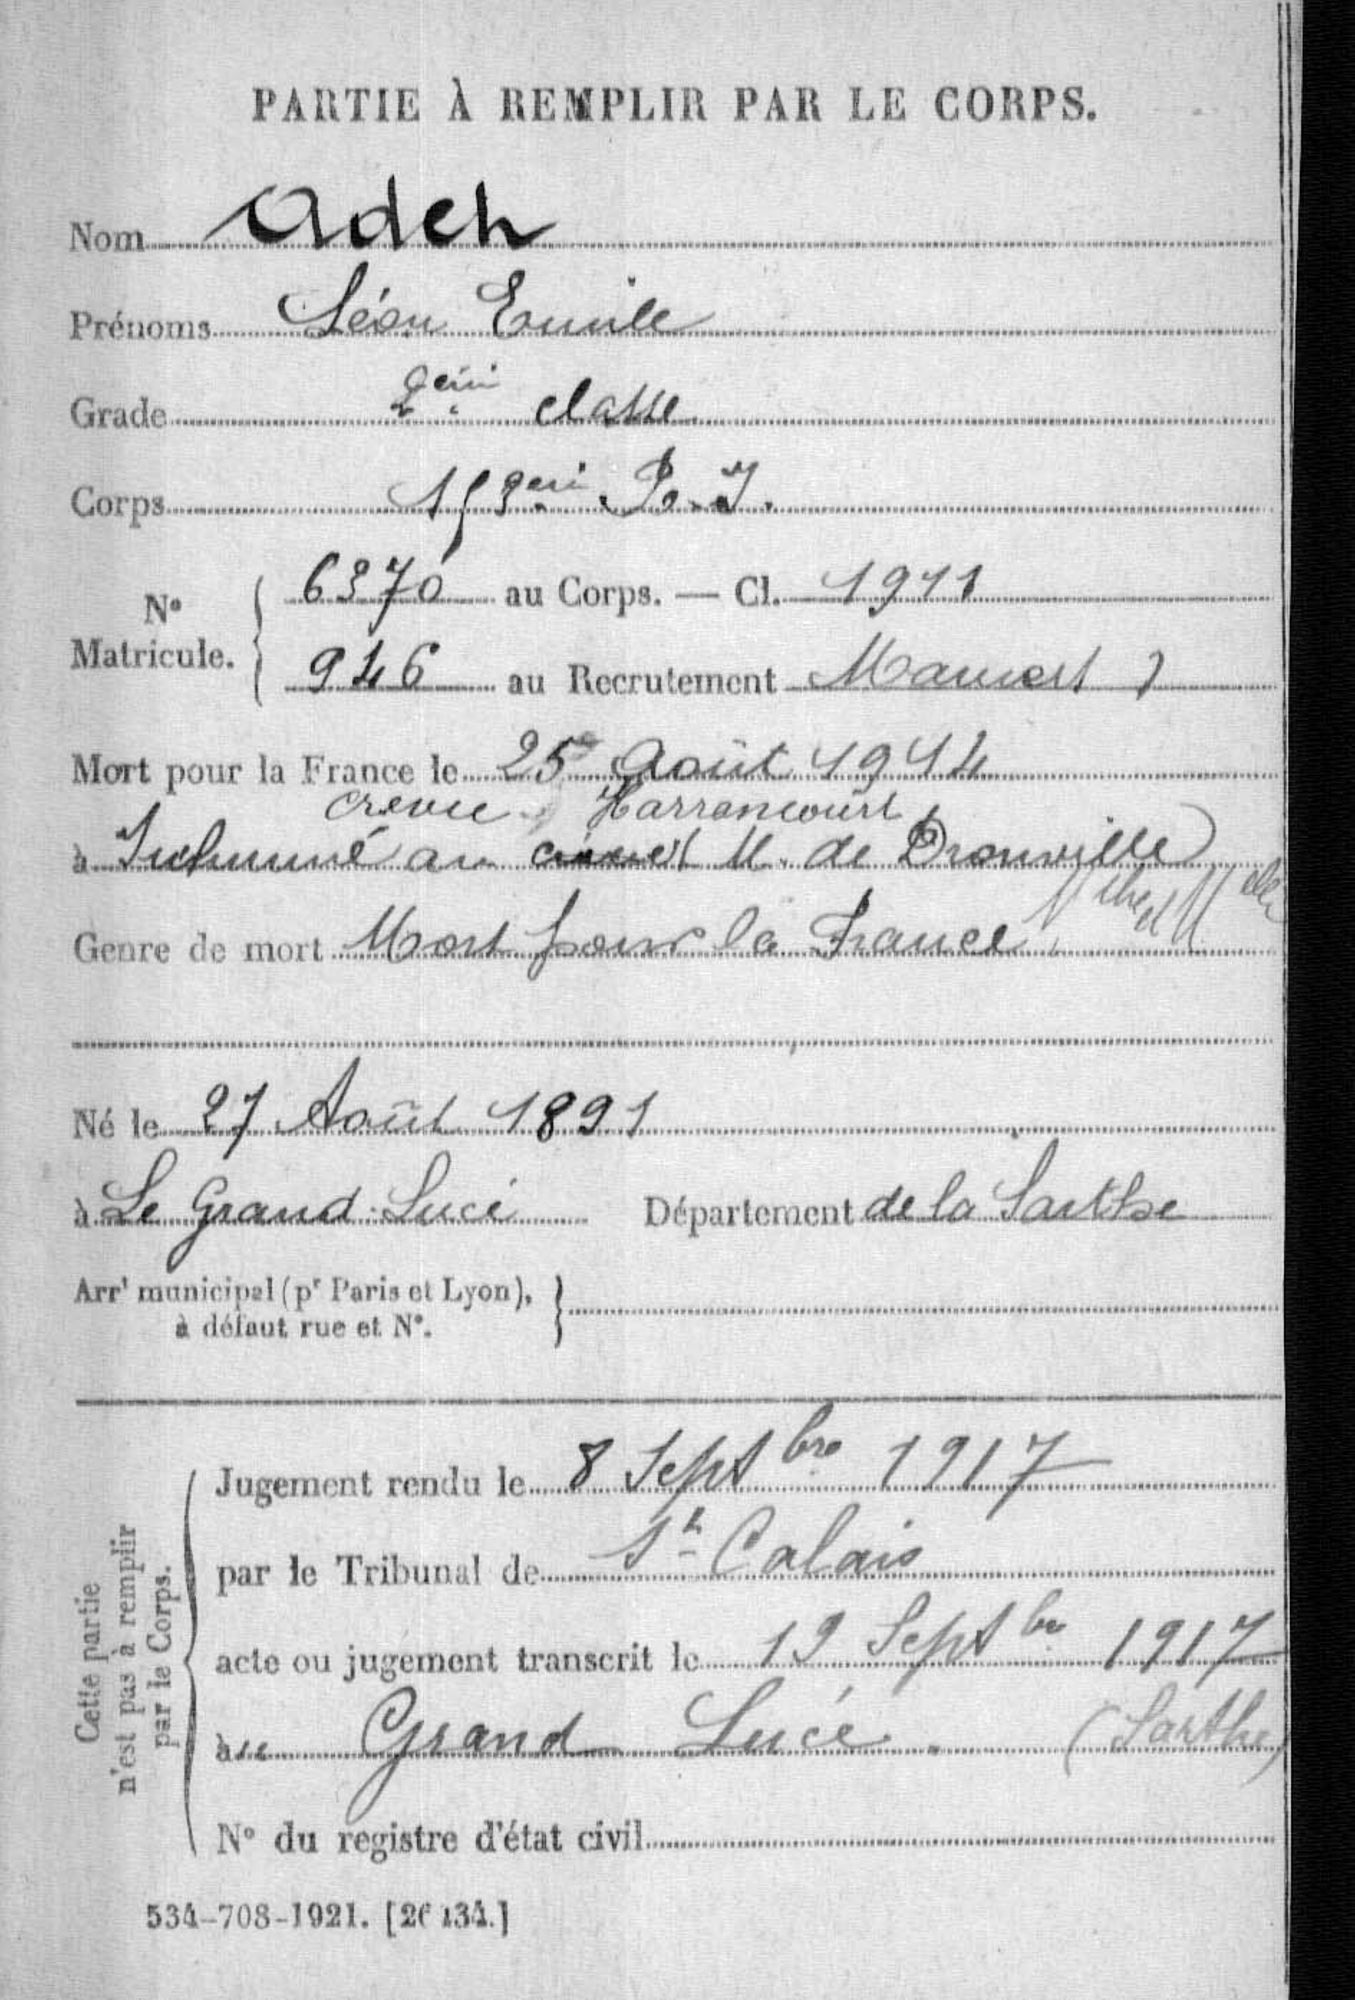 PARTIE À REMPLIR PAR LE CORPS.
Nom Adet
Prénoms Léon Emile
Grade 2eme classe
Corps 153eme R.I.
No Matricule. 6370 au Corps. — Cl. 1911
946 au Recrutement Mamers
Mort pour la France le 25 Août 1914
Crevic Harraucourt
à Inhumé au M. de Drouville
Genre de mort Mort pour la France
Né le 27 Août 1891
à Le Grand Lucé Département de la Sarthe
Arrt municipal (pr Paris et Lyon),
à défaut rue et No.
Cette partie
n'est pas à remplir
par le Corps.
Jugement rendu le 8 Septbre 1917
par le Tribunal de St Calais
acte ou jugement transcrit le 19 Septbre 1917
au Grand Lucé. (Sarthe)
No du registre d'état civil
534-708-1921. [26134.]